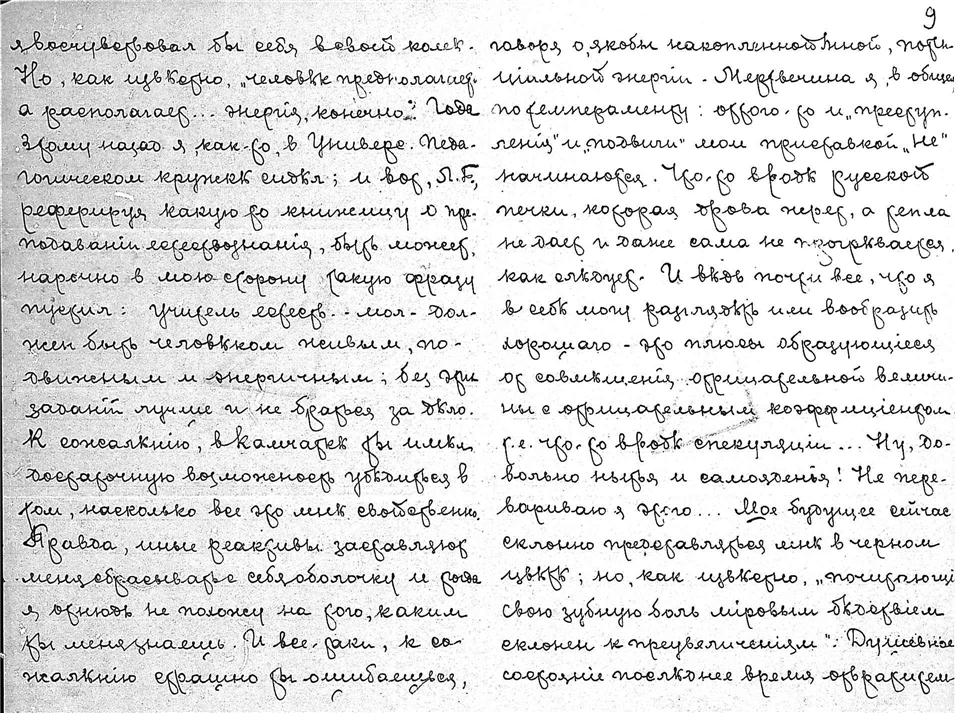 я восчувствовал бы себя в своей колек-
Но, как извѣстно, „человѣк предполагает,
а располагает... энергія, конечно". Года
3 тому назад я, как-то, в Универс. Педа-
гогическом кружкѣ сидѣл; и вот, Л. Г.,
реферируя какую то книжицу о пре-
подаваніи естествознанія, быть может,
нарочно в мою сторону такую фразу
пустил: учитель естеств. - мол - дол-
жен быть человѣком живым, по-
движным и энергичным; без этих
заданій лучше и не браться за дѣло.
К сожалѣнію, в Камчаткѣ ты имѣл
достаточную возможность убѣдиться в
том, насколько все это мнѣ свойственно.
Правда, иные реактивы заставляют
меня сбрасывать с себя оболочку и тогда
я отнюдь не похожу на того, каким
ты меня знаешь. И все-таки, к со-
жалѣнію страшно ты ошибаешься,
9
говоря о, якобы накопленной мной, потен-
ціальной энергіи - Мертвечина я, в общем,
по темпераменту: оттого-то и „преступ-
ленія" и „подвиги" мои приставкой „не"
начинаются. Что-то вродѣ русской
печки, которая дрова жрет, а тепла
не дает и даже сама не прогрѣвается,
как слѣдует. И вѣдь почти все, что я
в себѣ могу разглядѣть или вообразить
хорошаго - это плюсы образующіеся
от совмѣщенія отрицательной величи-
ны с отрицательным коэффиціентом
т.е. что-то вродѣ спекуляціи... Ну, до-
вольно нытья и самояденья! Не пере-
вариваю я этого... Мое будущее сейчас
склонно представляться мнѣ в черном
цвѣтѣ; но, как извѣстно, „почитающій
свою зубную боль міровым бѣдствіем
склонен к преувеличеніям". Душевное
состояніе послѣднее время отвратитем